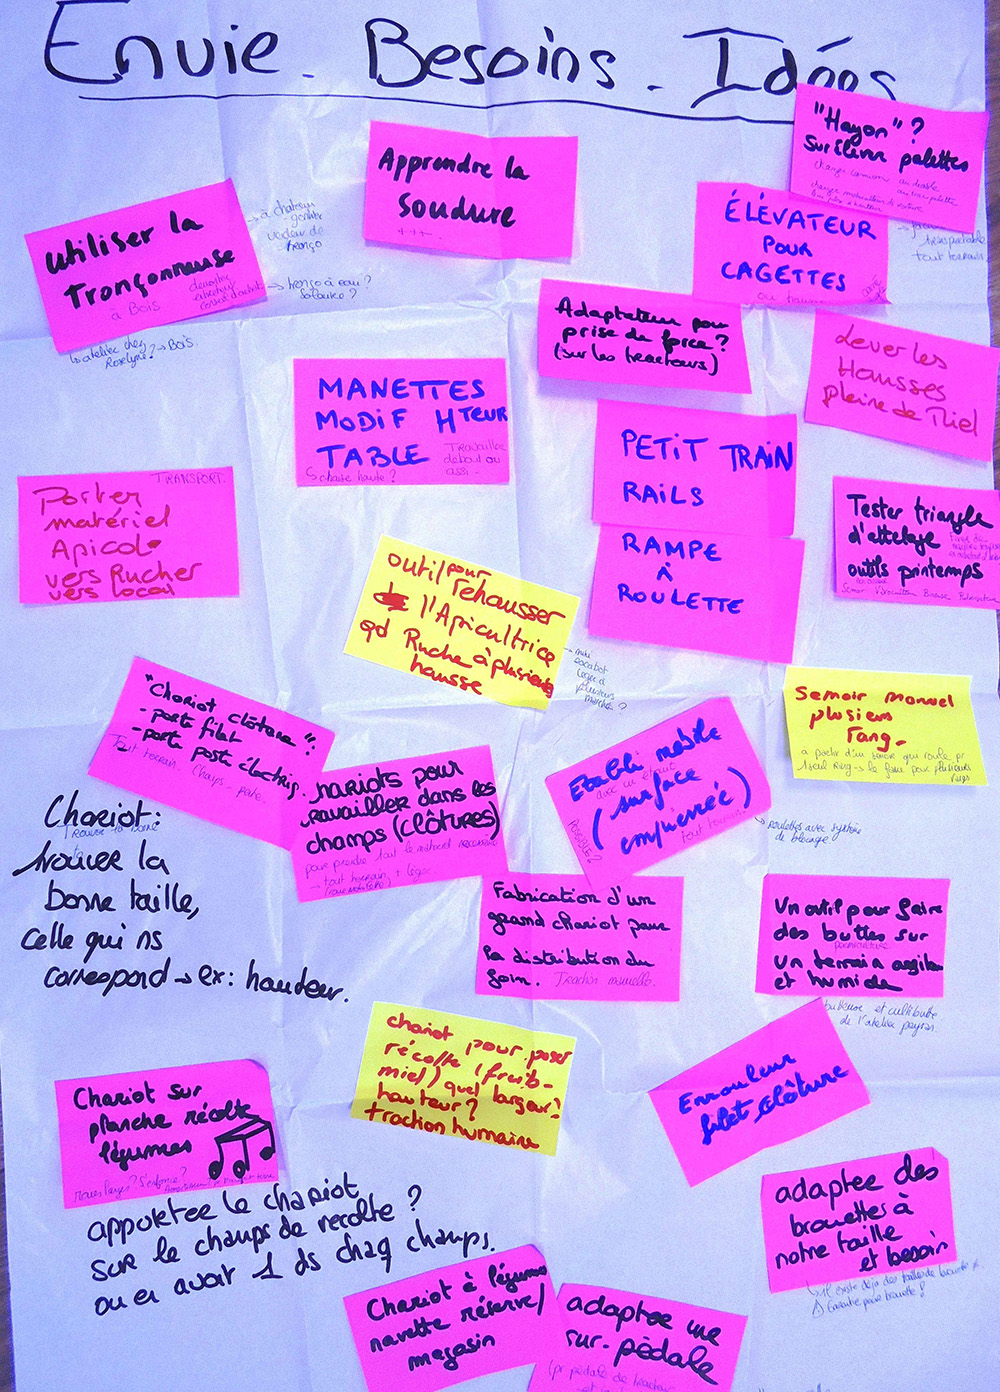 Envie - Besoins - Idées
"Hayon" ?
surélever palettes
Apprendre la
soudure
+++
utiliser la
Tronçonneuse
à Bois
→ à chateau
→ tronço à eau ?
↳ atelier chez
Roselyne? → Bois.
ÉLÉVATEUR
POUR
CAGETTES
tout terrain
Adaptateur pour
prise de force ?
(sur les tracteurs)
Lever les
Hausses
pleine de Miel
MANETTES
MODIF HTEUR
TABLE
Travailler
debout ou
assi -
↳ chaise haute ?
PETIT TRAIN
RAILS
TRANSPORT
Porter
matériel
Apicole
vers Rucher
vers local
Tester triangle
d'attelage
outils printemps
RAMPE
À
ROULETTE
outil pour
rehausser
l'Apicultrice
qd Ruche à plusieurs
hausse
"Chariot clôture":
- porte filet
- porte poste électriq.
Tout terrain. Champs -
Semoir manuel
plusieurs
rang-
à partir d'un semoir qui roule pr
1 seul rang → le faire pour plusieurs
rangs
Etabli mobile
(surface
empierrée)
tout terrain
→ roulettes avec système
de blocage
chariots pour
travailler dans les
champs (clôtures)
pour prendre tout le matériel nécessaire
→ tout terrain, + léger
Chariot:
trouver la bonne
trouver la
bonne taille,
celle qui ns
correspond → ex: hauteur.
Fabrication d'un
grand chariot pour
la distribution du
foin. Traction manuelle.
Un outil pour faire
des buttes sur
un terrain argileux
et humide
butteuse et cultibutte
de l'atelier paysan
chariot pour poser
récolte (fruits-
miel) quel largeur?
hauteur?
traction humaine
Enrouleur
filet clôture
Chariot sur
planche récolte
légumes
roues larges? S'enfonce?
apporter le chariot
sur le champs de recolte ?
ou en avoir 1 ds chaq champs.
adapter des
brouettes à
notre taille
et besoin
↳ Il existe déjà des tailles de brouette
Chariot à légumes
navette réserve/
magasin
adapter une
sur-pédale
(pr pédale de tracteur